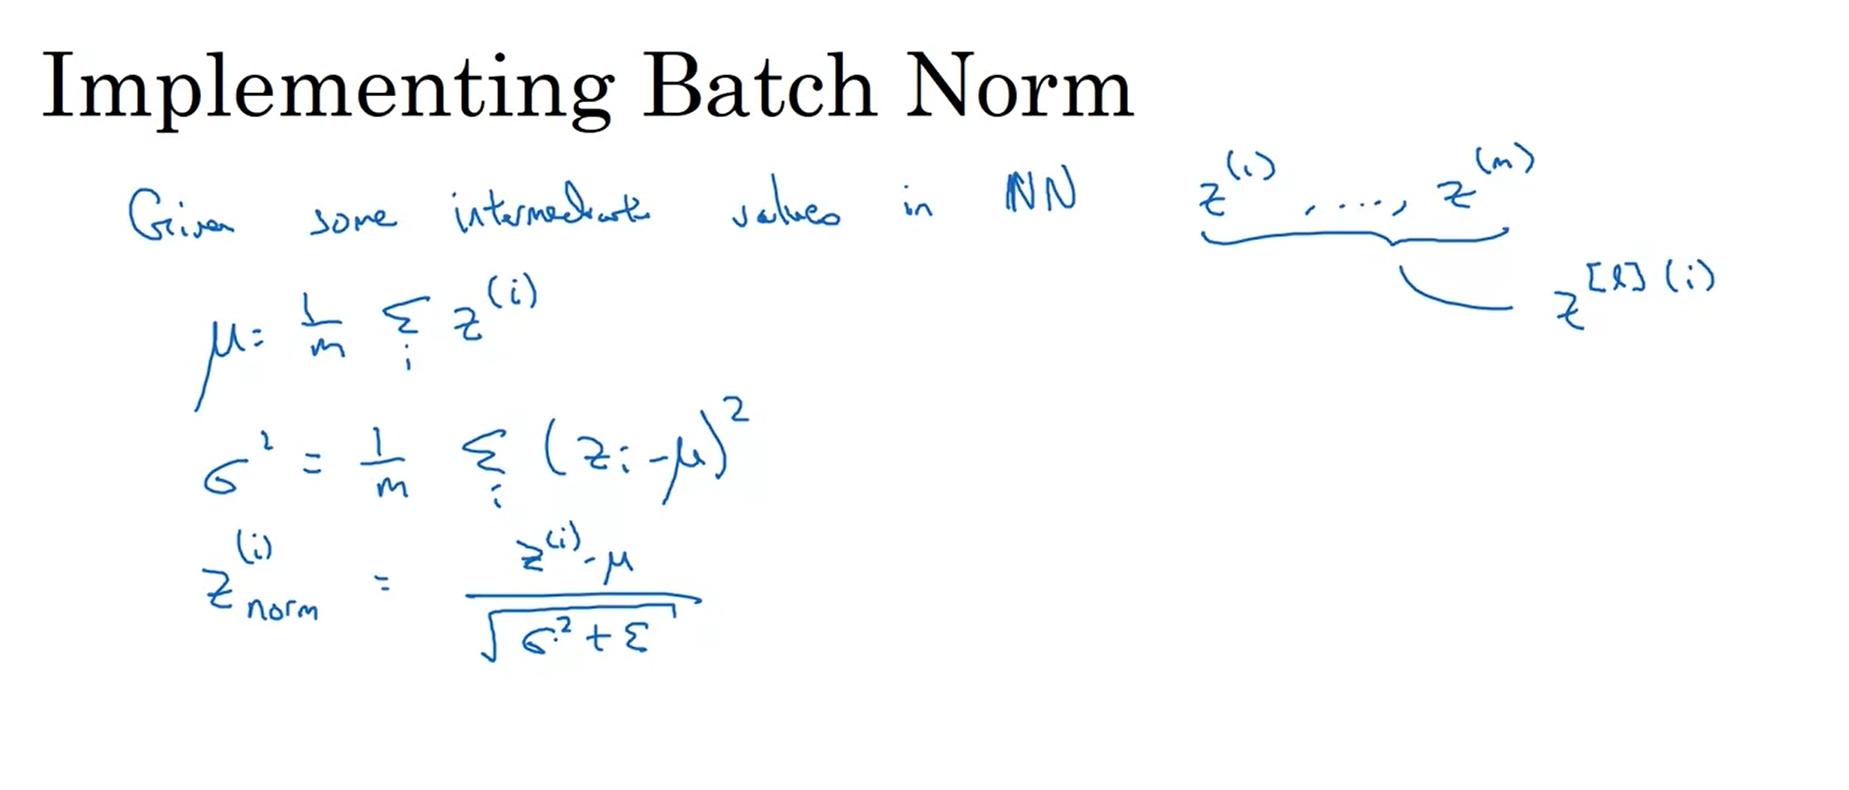 Implementing Batch Norm
Given some intermediate values in NN z^(1), ...., z^(m)
z^[l](i)
μ = 1/m Σ_i z^(i)
σ² = 1/m Σ_i (z_i - μ)²
z_norm^(i) = (z^(i) - μ) / √(σ² + ε)